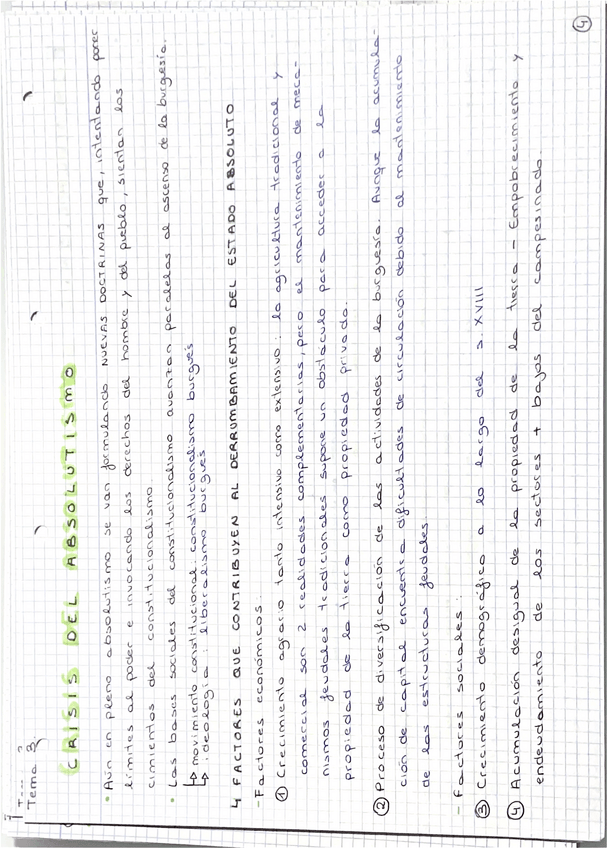 Tema 3
CRISIS DEL ABSOLUTISMO
• Aún en pleno absolutismo se van formulando NUEVAS DOCTRINAS que, intentando poner
límites al poder e invocando los derechos del hombre y del pueblo, sientan los
cimientos del constitucionalismo
• Las bases sociales del constitucionalismo avanzan paralelas al ascenso de la burguesía.
↳ movimiento constitucional: constitucionalismo burgués
↳ ideología: liberalismo burgués
4 FACTORES QUE CONTRIBUYEN AL DERRUMBAMIENTO DEL ESTADO ABSOLUTO
- Factores económicos:
① Crecimiento agrario tanto intensivo como extensivo: la agricultura tradicional y
comercial son 2 realidades complementarias, pero el mantenimiento de meca-
nismos feudales tradicionales supone un obstáculo para acceder a la
propiedad de la tierra como propiedad privada.
② Proceso de diversificación de las actividades de la burguesía. Aunque la acumula-
ción de capital encuentra dificultades de circulación debido al mantenimiento
de las estructuras feudales.
- Factores sociales:
③ Crecimiento demográfico a lo largo del s. XVIII
④ Acumulación desigual de la propiedad de la tierra - Empobrecimiento y
endeudamiento de los sectores + bajos del campesinado.
④